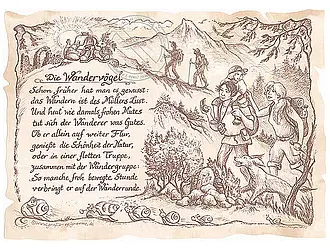 Die Wandervögel
Schon früher hat man es gewusst:
das Wandern ist des Müllers Lust.
Und heut wie damals frohen Mutes
tut sich der Wanderer was Gutes.
Ob er allein auf weiter Flur,
genießt die Schönheit der Natur,
oder in einer flotten Truppe,
zusammen mit der Wandergruppe:
So manche, froh bewegte Stunde
verbringt er auf der Wanderrunde.